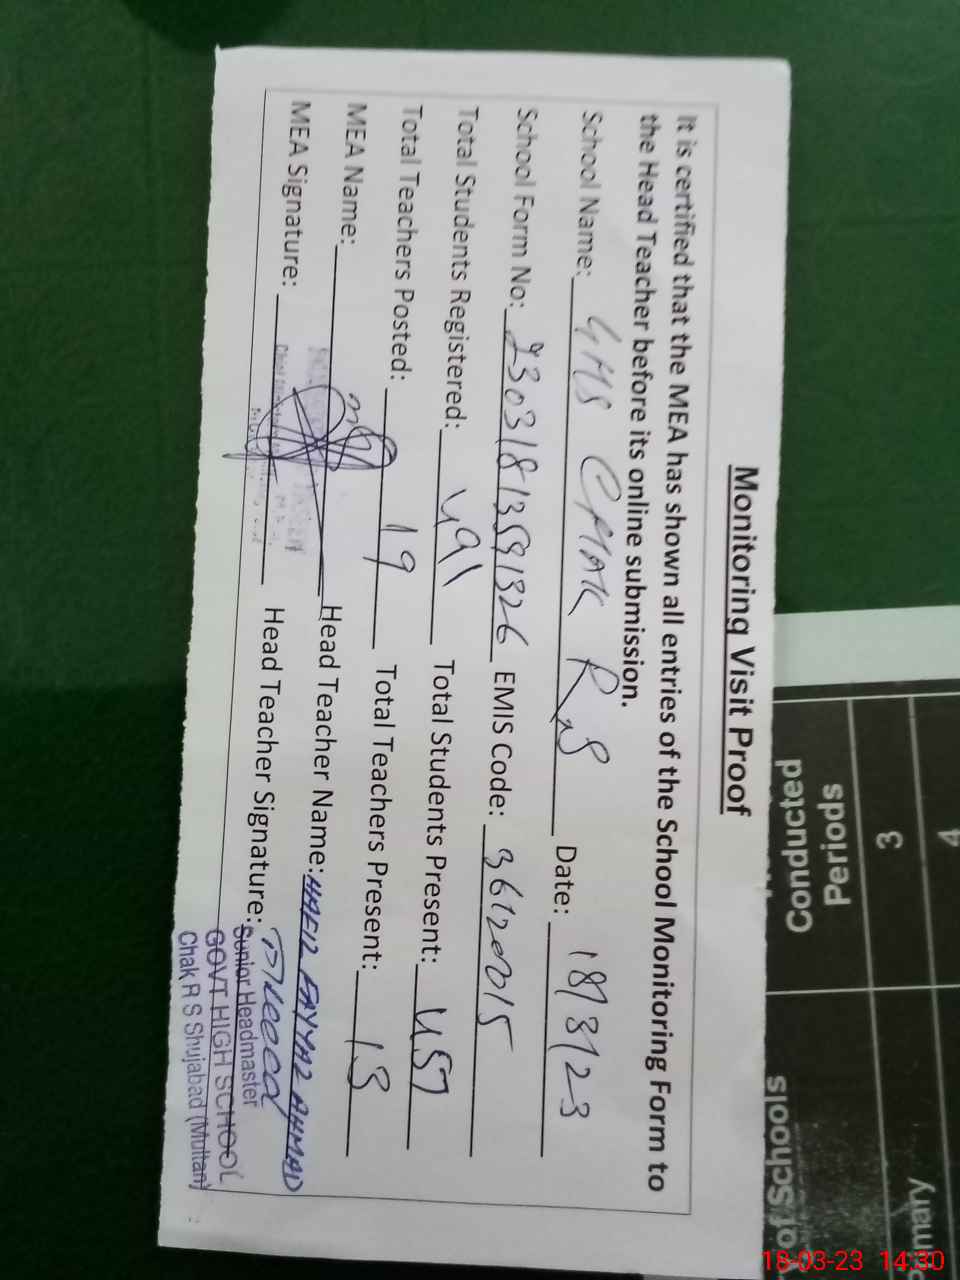 Monitoring Visit Proof
It is certified that the MEA has shown all entries of the School Monitoring Form to
the Head Teacher before its online submission.
School Name: GHS CHAK R.S Date: 18/3/23
School Form No: 23031813591326 EMIS Code: 36120015
Total Students Registered: 491 Total Students Present: 457
Total Teachers Posted: 19 Total Teachers Present: 13
MEA Name: Head Teacher Name: HAFIZ FAYYAZ AHMAD
MEA Signature: Head Teacher Signature:
Senior Headmaster
GOVT HIGH SCHOOL
Chak R S Shujabad (Multan)
Periods
Conducted
3
4
of Schools
18-03-23 14:30